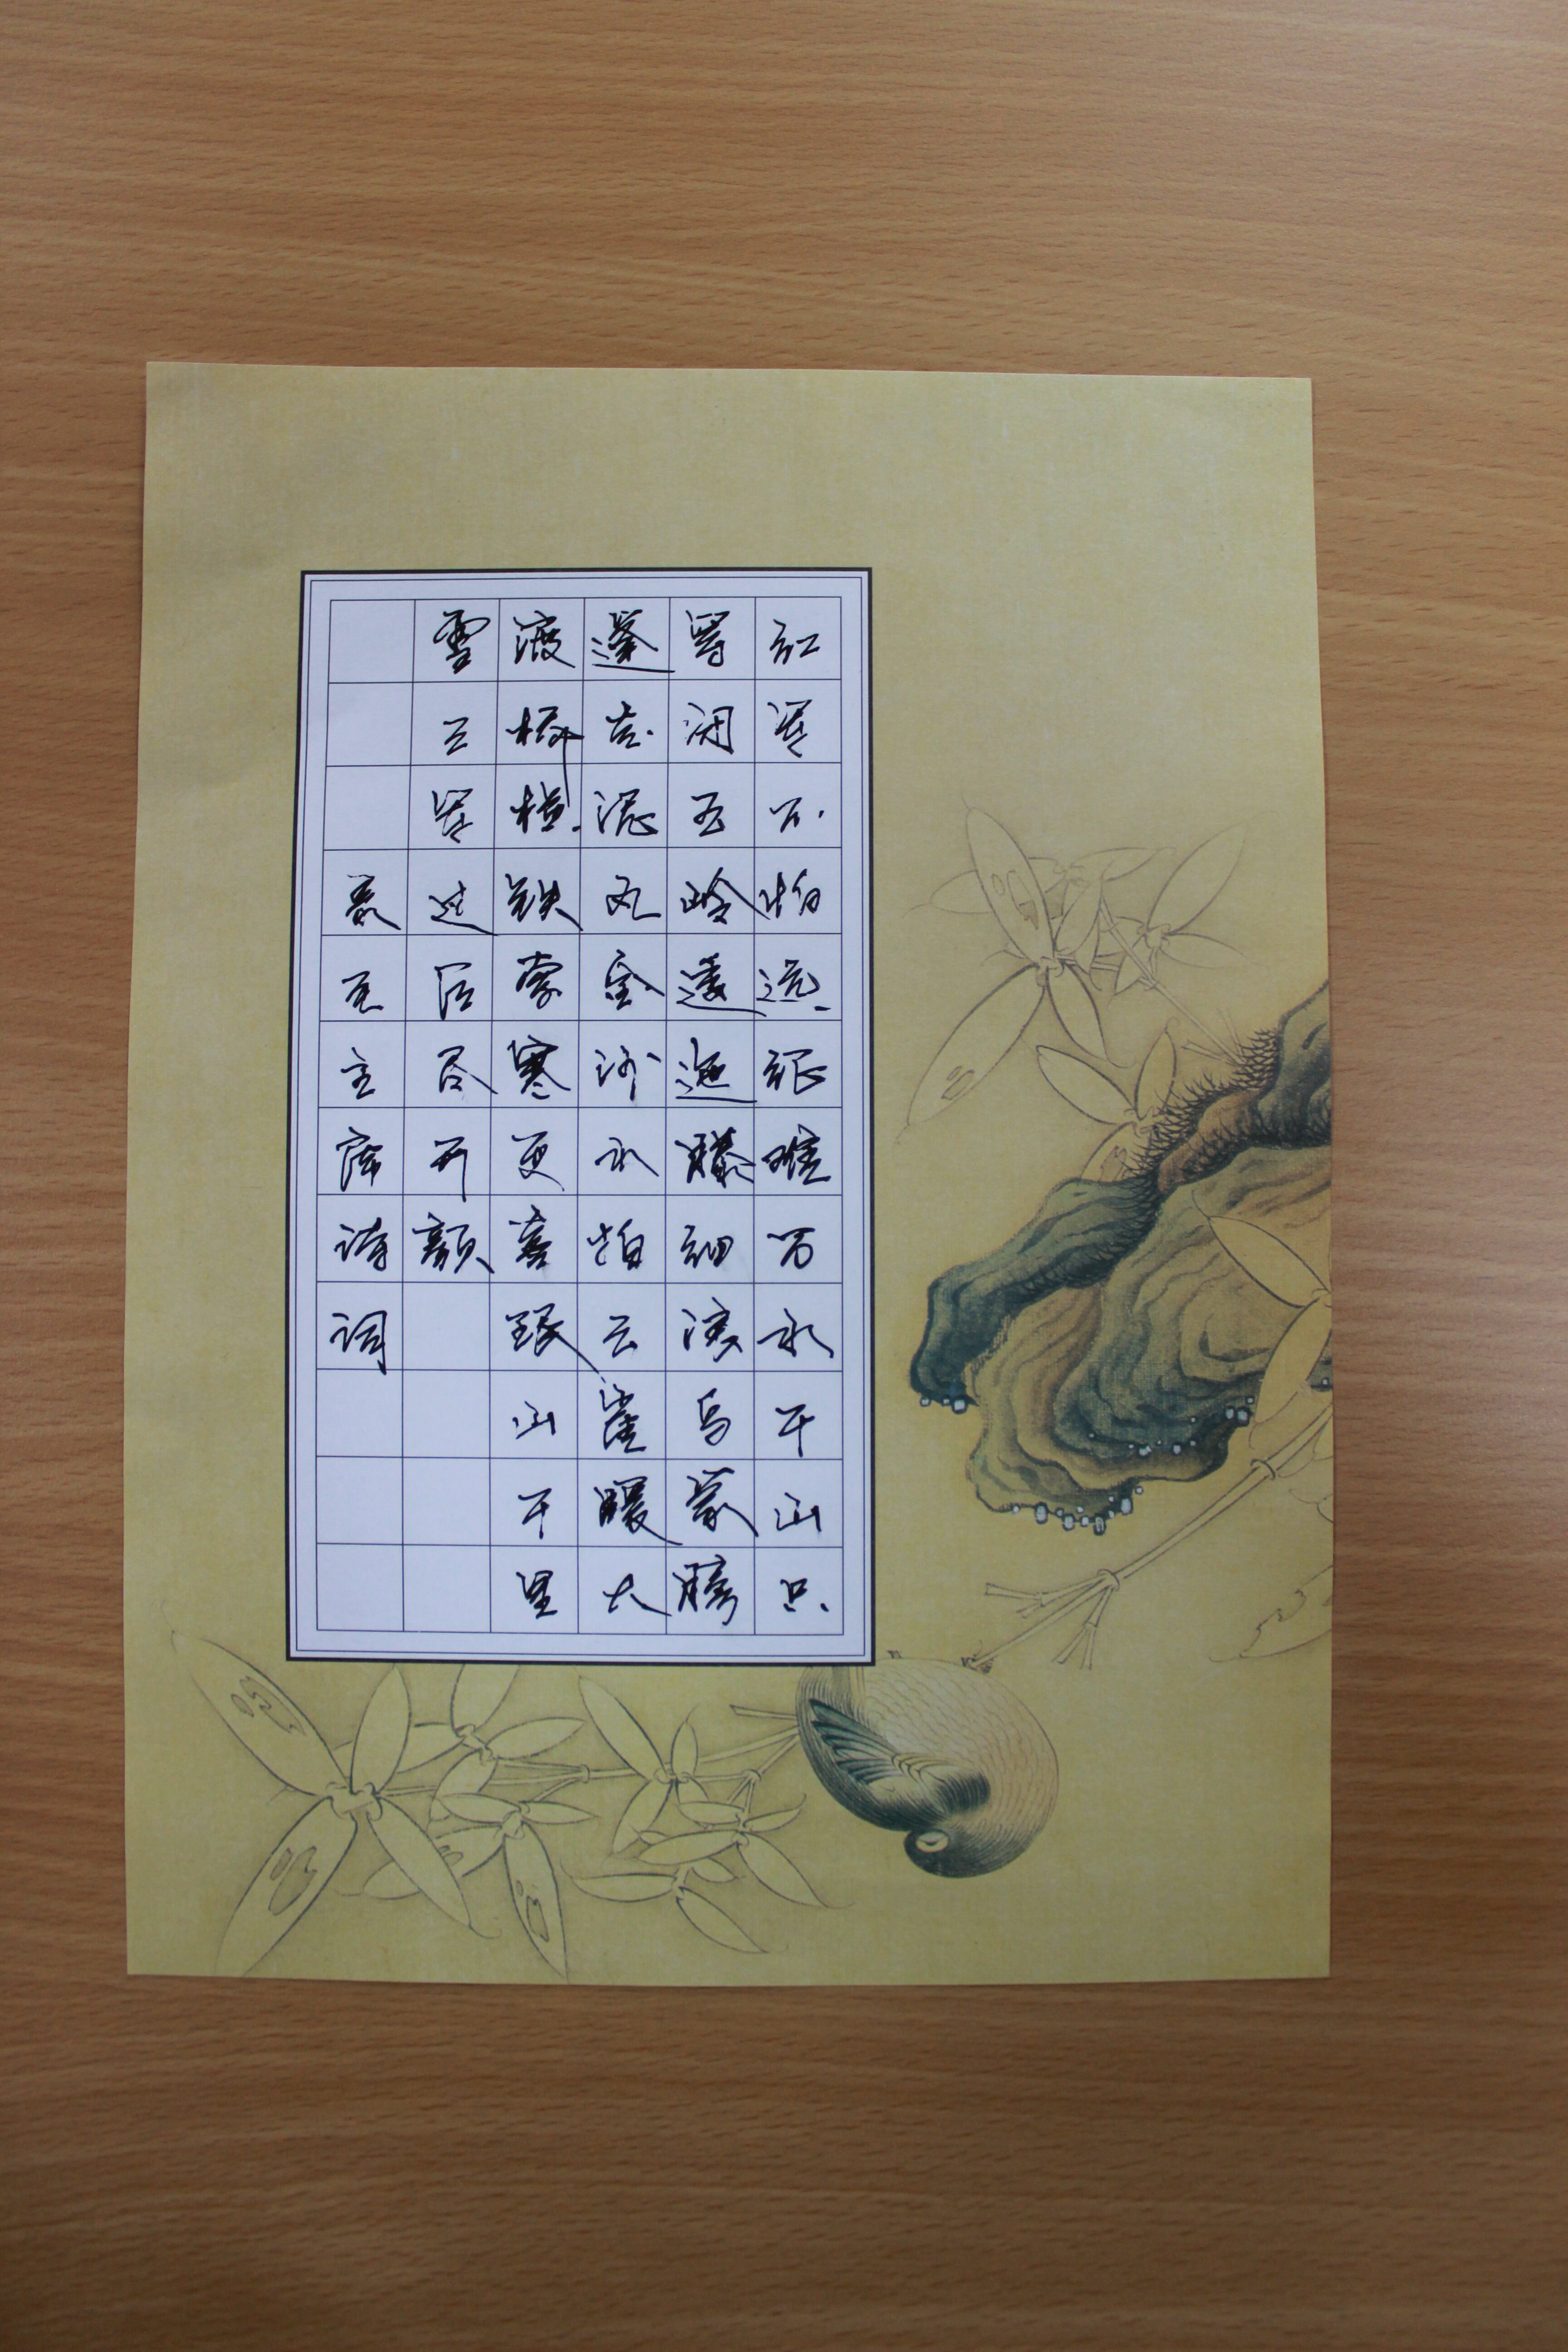 红军不怕远征难万水千山只
等闲五岭逶迤腾细浪乌蒙磅
礴走泥丸金沙水拍云崖暖大
渡桥横铁索寒更喜岷山千里
雪三军过后尽开颜
录毛主席诗词